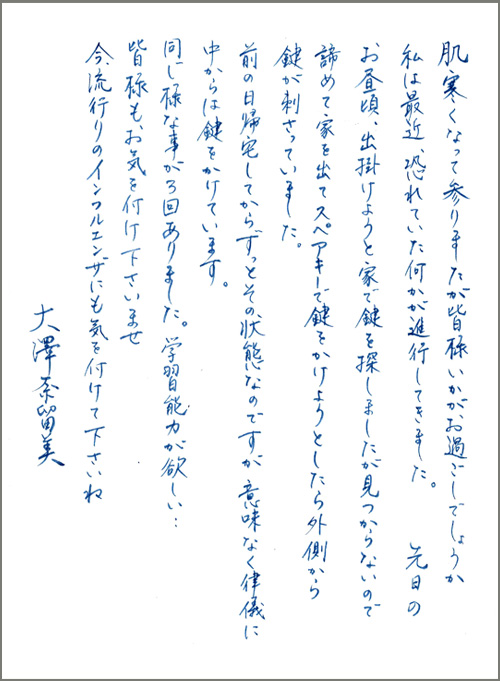 肌寒くなって参りましたが皆様いかがお過ごしでしょうか
私は最近、恐れていた何かが進行してきました。　先日の
お昼頃、出掛けようと家で鍵を探しましたが見つからないので
諦めて家を出てスペアキーで鍵をかけようとしたら外側から
鍵が刺さっていました。
前の日帰宅してからずっとその状態なのですが意味なく律儀に
中からは鍵をかけています。
同じ様な事が3回ありました。学習能力が欲しい…
皆様も、お気を付け下さいませ
今、流行りのインフルエンザにも気を付けて下さいね
大澤奈留美